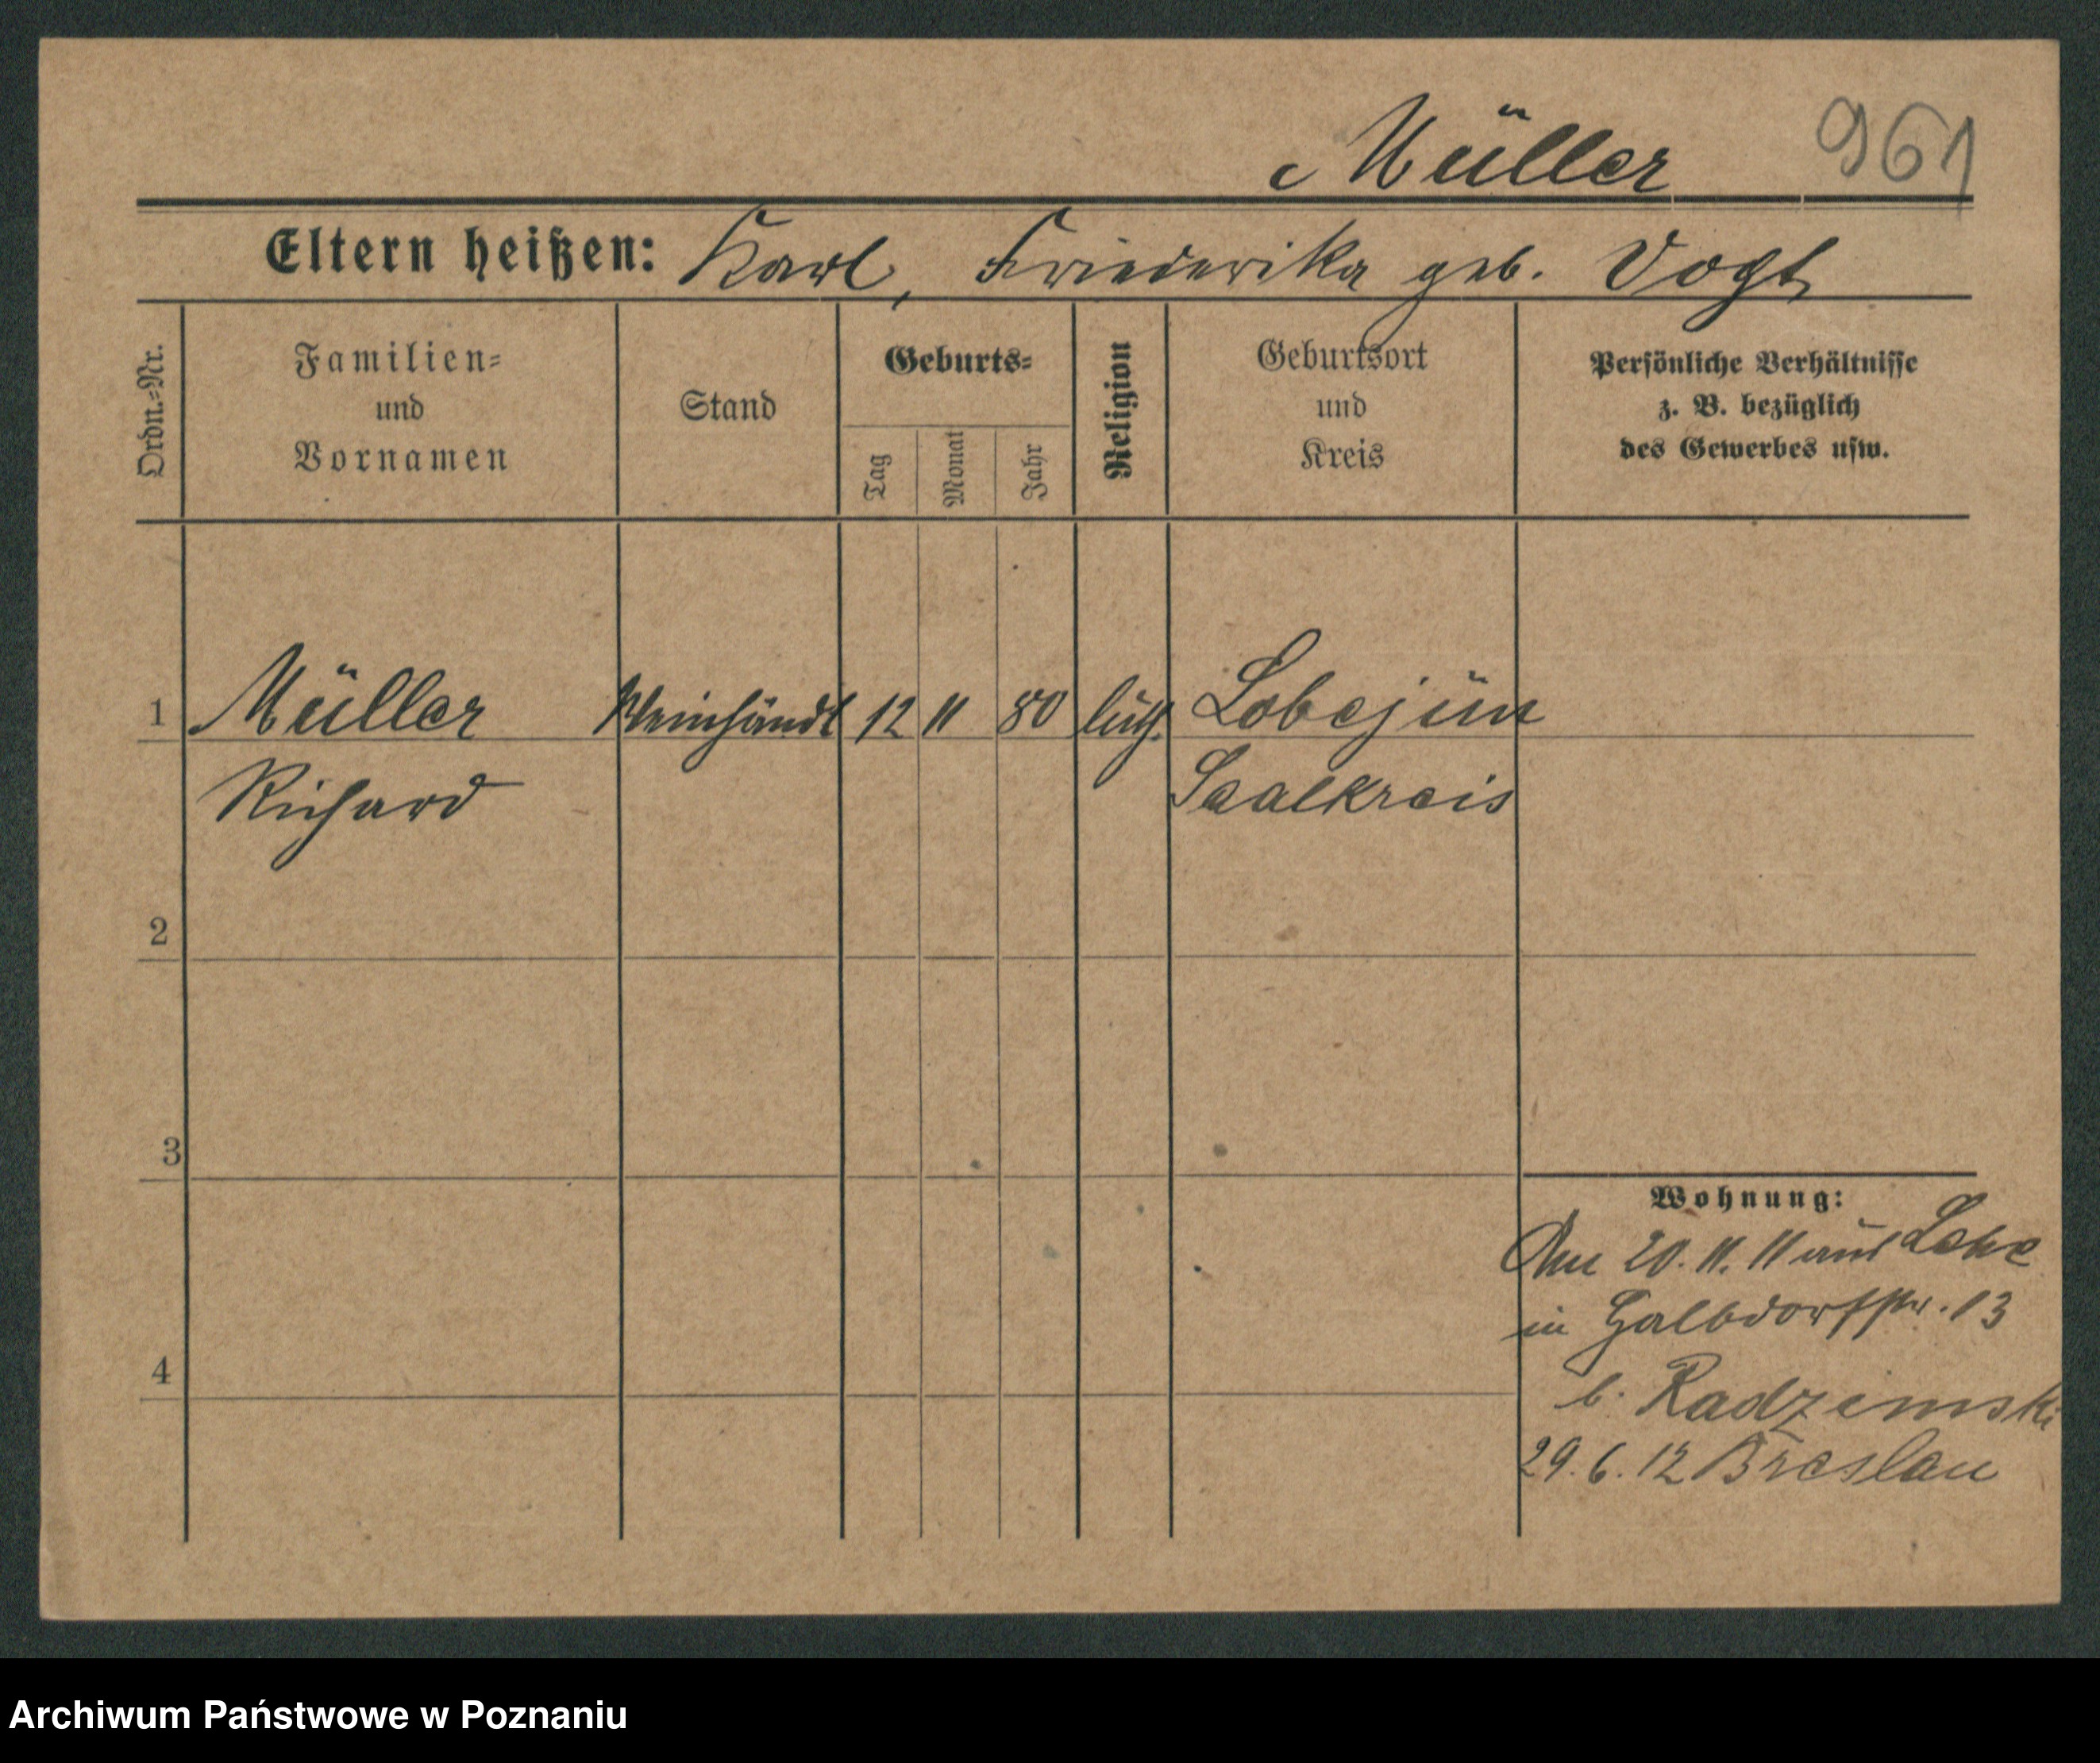 Müller 961
Eltern heißen: Karl, Friederika geb. Vogt
Ordn.-Nr.
Familien-
und
Vornamen
Stand
Geburts-
Tag
Monat
Jahr
Religion
Geburtsort
und
Kreis
Persönliche Verhältnisse
z. B. bezüglich
des Gewerbes usw.
1 Müller Weinhändl 12 11 80 luth. Lobejün
Richard Saalkreis
2
3
4
Wohnung:
20. 11. 11 aus
in Halbdorfstr. 13
b. Radzimski
29. 6. 12 Breslau
Archiwum Państwowe w Poznaniu